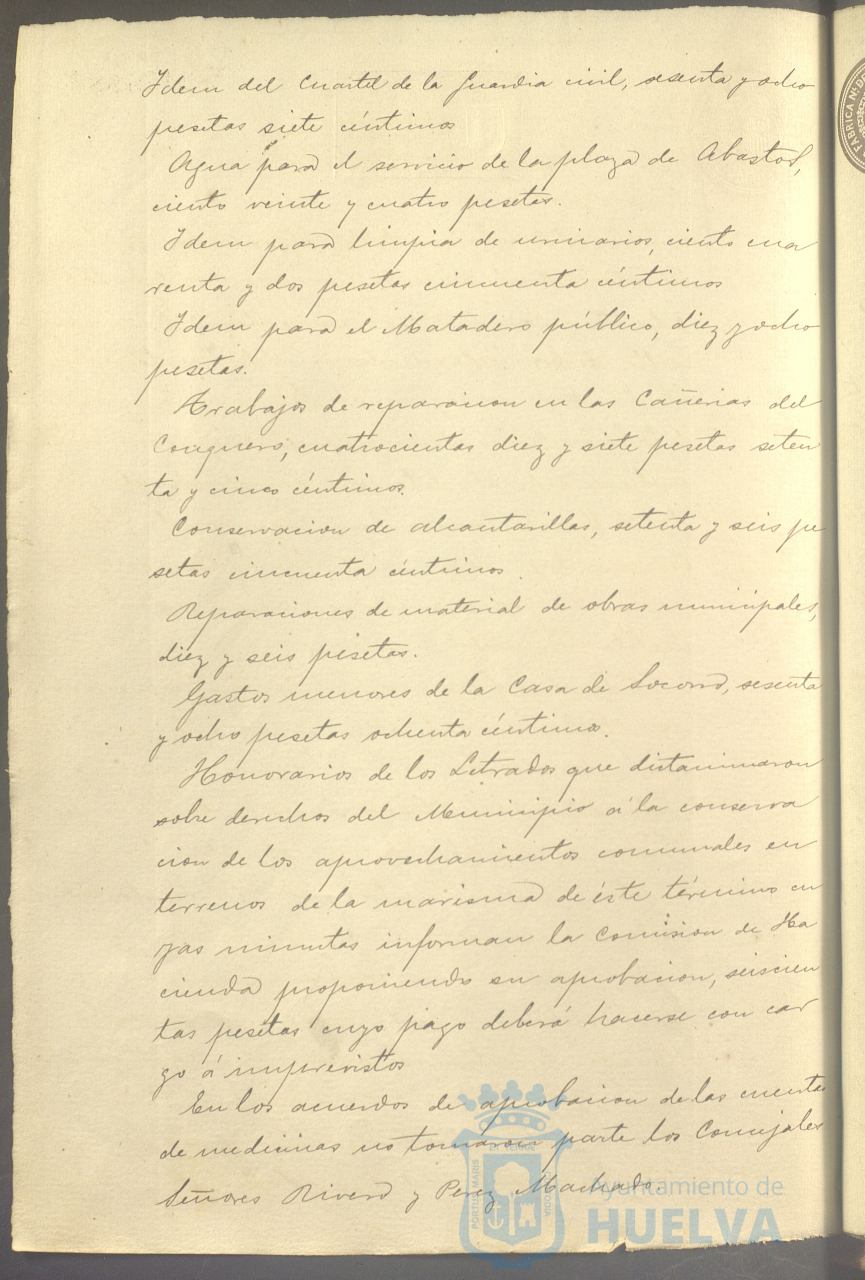 Idem del Cuartel de la Guardia civil, sesenta y ocho
pesetas siete céntimos
Agua para el servicio de la plaza de Abastos,
ciento veinte y cuatro pesetas.
Idem para limpia de urinarios, ciento cua
renta y dos pesetas cincuenta céntimos
Idem para el Matadero público, diez y ocho
pesetas.
Trabajos de reparacion en las Cañerias del
Conquero, cuatrocientas diez y siete pesetas seten
ta y cinco céntimos.
Conservacion de alcantarillas, setenta y seis pe
setas cincuenta céntimos.
Reparaciones de material de obras municipales,
diez y seis pesetas.
Gastos menores de la Casa de Socorro, sesenta
y ocho pesetas ochenta céntimos.
Honorarios de los Letrados que dictaminaron
sobre derechos del Municipio á la conserva
cion de los aprovechamientos comunales en
terrenos de la marisma de éste término cu
yas minutas informan la Comision de Ha
cienda proponiendo su aprobacion, seiscien
tas pesetas cuyo pago deberá hacerse con car
go á imprevistos
En los acuerdos de aprobacion de las cuentas
de medicinas no tomaron parte los Concejales
Señores Rivero y Perez Machado.
PORTUS MARIS ET TERRAE CUSTODIA
Ayuntamiento de
HUELVA
FABRICA Nº DE